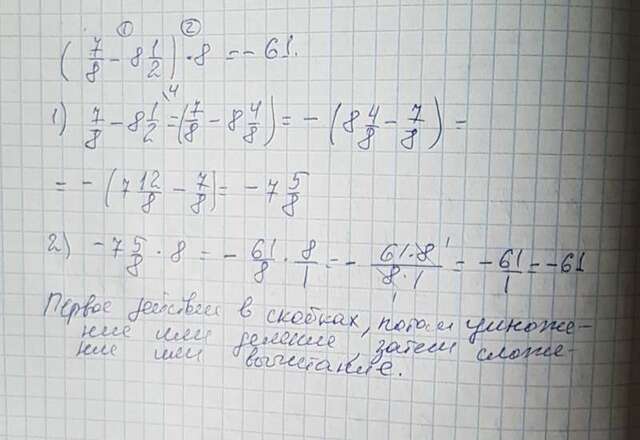 ① ②
(7/8 - 8 1/2) · 8 = -61.
1) 7/8 - 8 1/2 \4 = (7/8 - 8 4/8) = - (8 4/8 - 7/8) =
= - (7 12/8 - 7/8) = - 7 5/8
2) -7 5/8 · 8 = - 61/8 · 8/1 = - 61·8 1/8·1 1 = - 61/1 = -61
Первое действие в скобках, потом умноже-
ние или деление, затем сложе-
ние или вычитание.